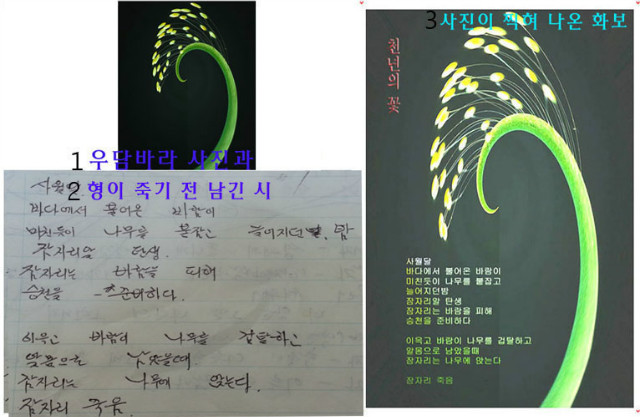 1 우담바라 사진과
2 형이 죽기 전 남긴 시
바다에서 불어온 바람이
미친듯이 나무를 붙잡고 늘어지던 밤
잠자리알 탄생.
잠자리는 바람을 피해
승천을 준비하다.
이윽고 바람이 나무를 겁탈하고
알몸으로 남았을때
잠자리는 나무에 앉는다.
잠자리 죽음.
3사진이 찍혀 나온 화보
천년의 꽃
사월달
바다에서 불어온 바람이
미친듯이 나무를 붙잡고
늘어지던밤
잠자리알 탄생
잠자리는 바람을 피해
승천을 준비하다
이윽고 바람이 나무를 겁탈하고
알몸으로 남았을때
잠자리는 나무에 앉는다
잠자리 죽음